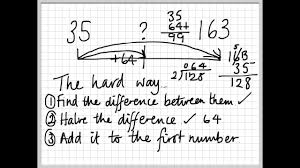 35 ? 163
35
64+
99
+64
064
2)128
163
35
128
The hard way...
① Find the difference between them ✓
② Halve the difference ✓ 64
③ Add it to the first number